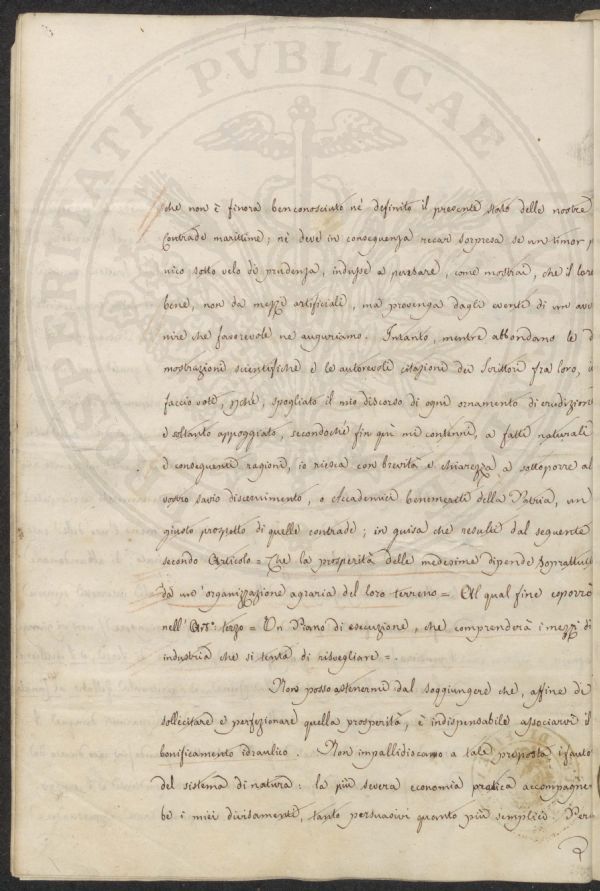 che non è finora ben conosciuto nè definito il presente stato delle nostre
Contrade marittime; nè deve in conseguenza recar sorpresa se un timor
nico sotto velo di prudenza, indusse a pensare, come mostrai, che il loro
bene, non da mezzi artificiali, ma provenga dagli eventi di un avve
nire che favorevole ne auguriamo. Intanto, mentre abbondano le
mostrazioni scientifiche e le autorevoli citazioni dei Scrittori fra loro,
faccio voti, che, spogliato il mio discorso di ogni ornamento di erudizione
e soltanto appoggiato, secondochè fin quì mi contenni, a fatti naturali
e conseguenti ragioni, io riesca con brevità e chiarezza a sottoporre al
vostro savio discernimento, o Accademici benemeriti della Patria, un
giusto prospetto di quelle contrade; in guisa che resulti dal seguente
secondo Articolo = Che la prosperità delle medesime dipende soprattutto
da un'organizzazione agraria del loro terreno =. Al qual fine esporrò
nell'Art.º terzo = Un Piano di esecuzione, che comprenderà i mezzi di
industria che si tenta di risvegliare =.
Non posso astenermi dal soggiungere che, affine di
sollecitare e perfezionare quella prosperità, è indispensabile associarvi il
bonificamento idraulico. Non impallidiscano a tale proposta i fauto
del sistema di natura: la più severa economia pratica accompagne
be i miei divisamenti, tanto persuasivi quanto più semplici. Però
PROSPERITATI PUBLICAE